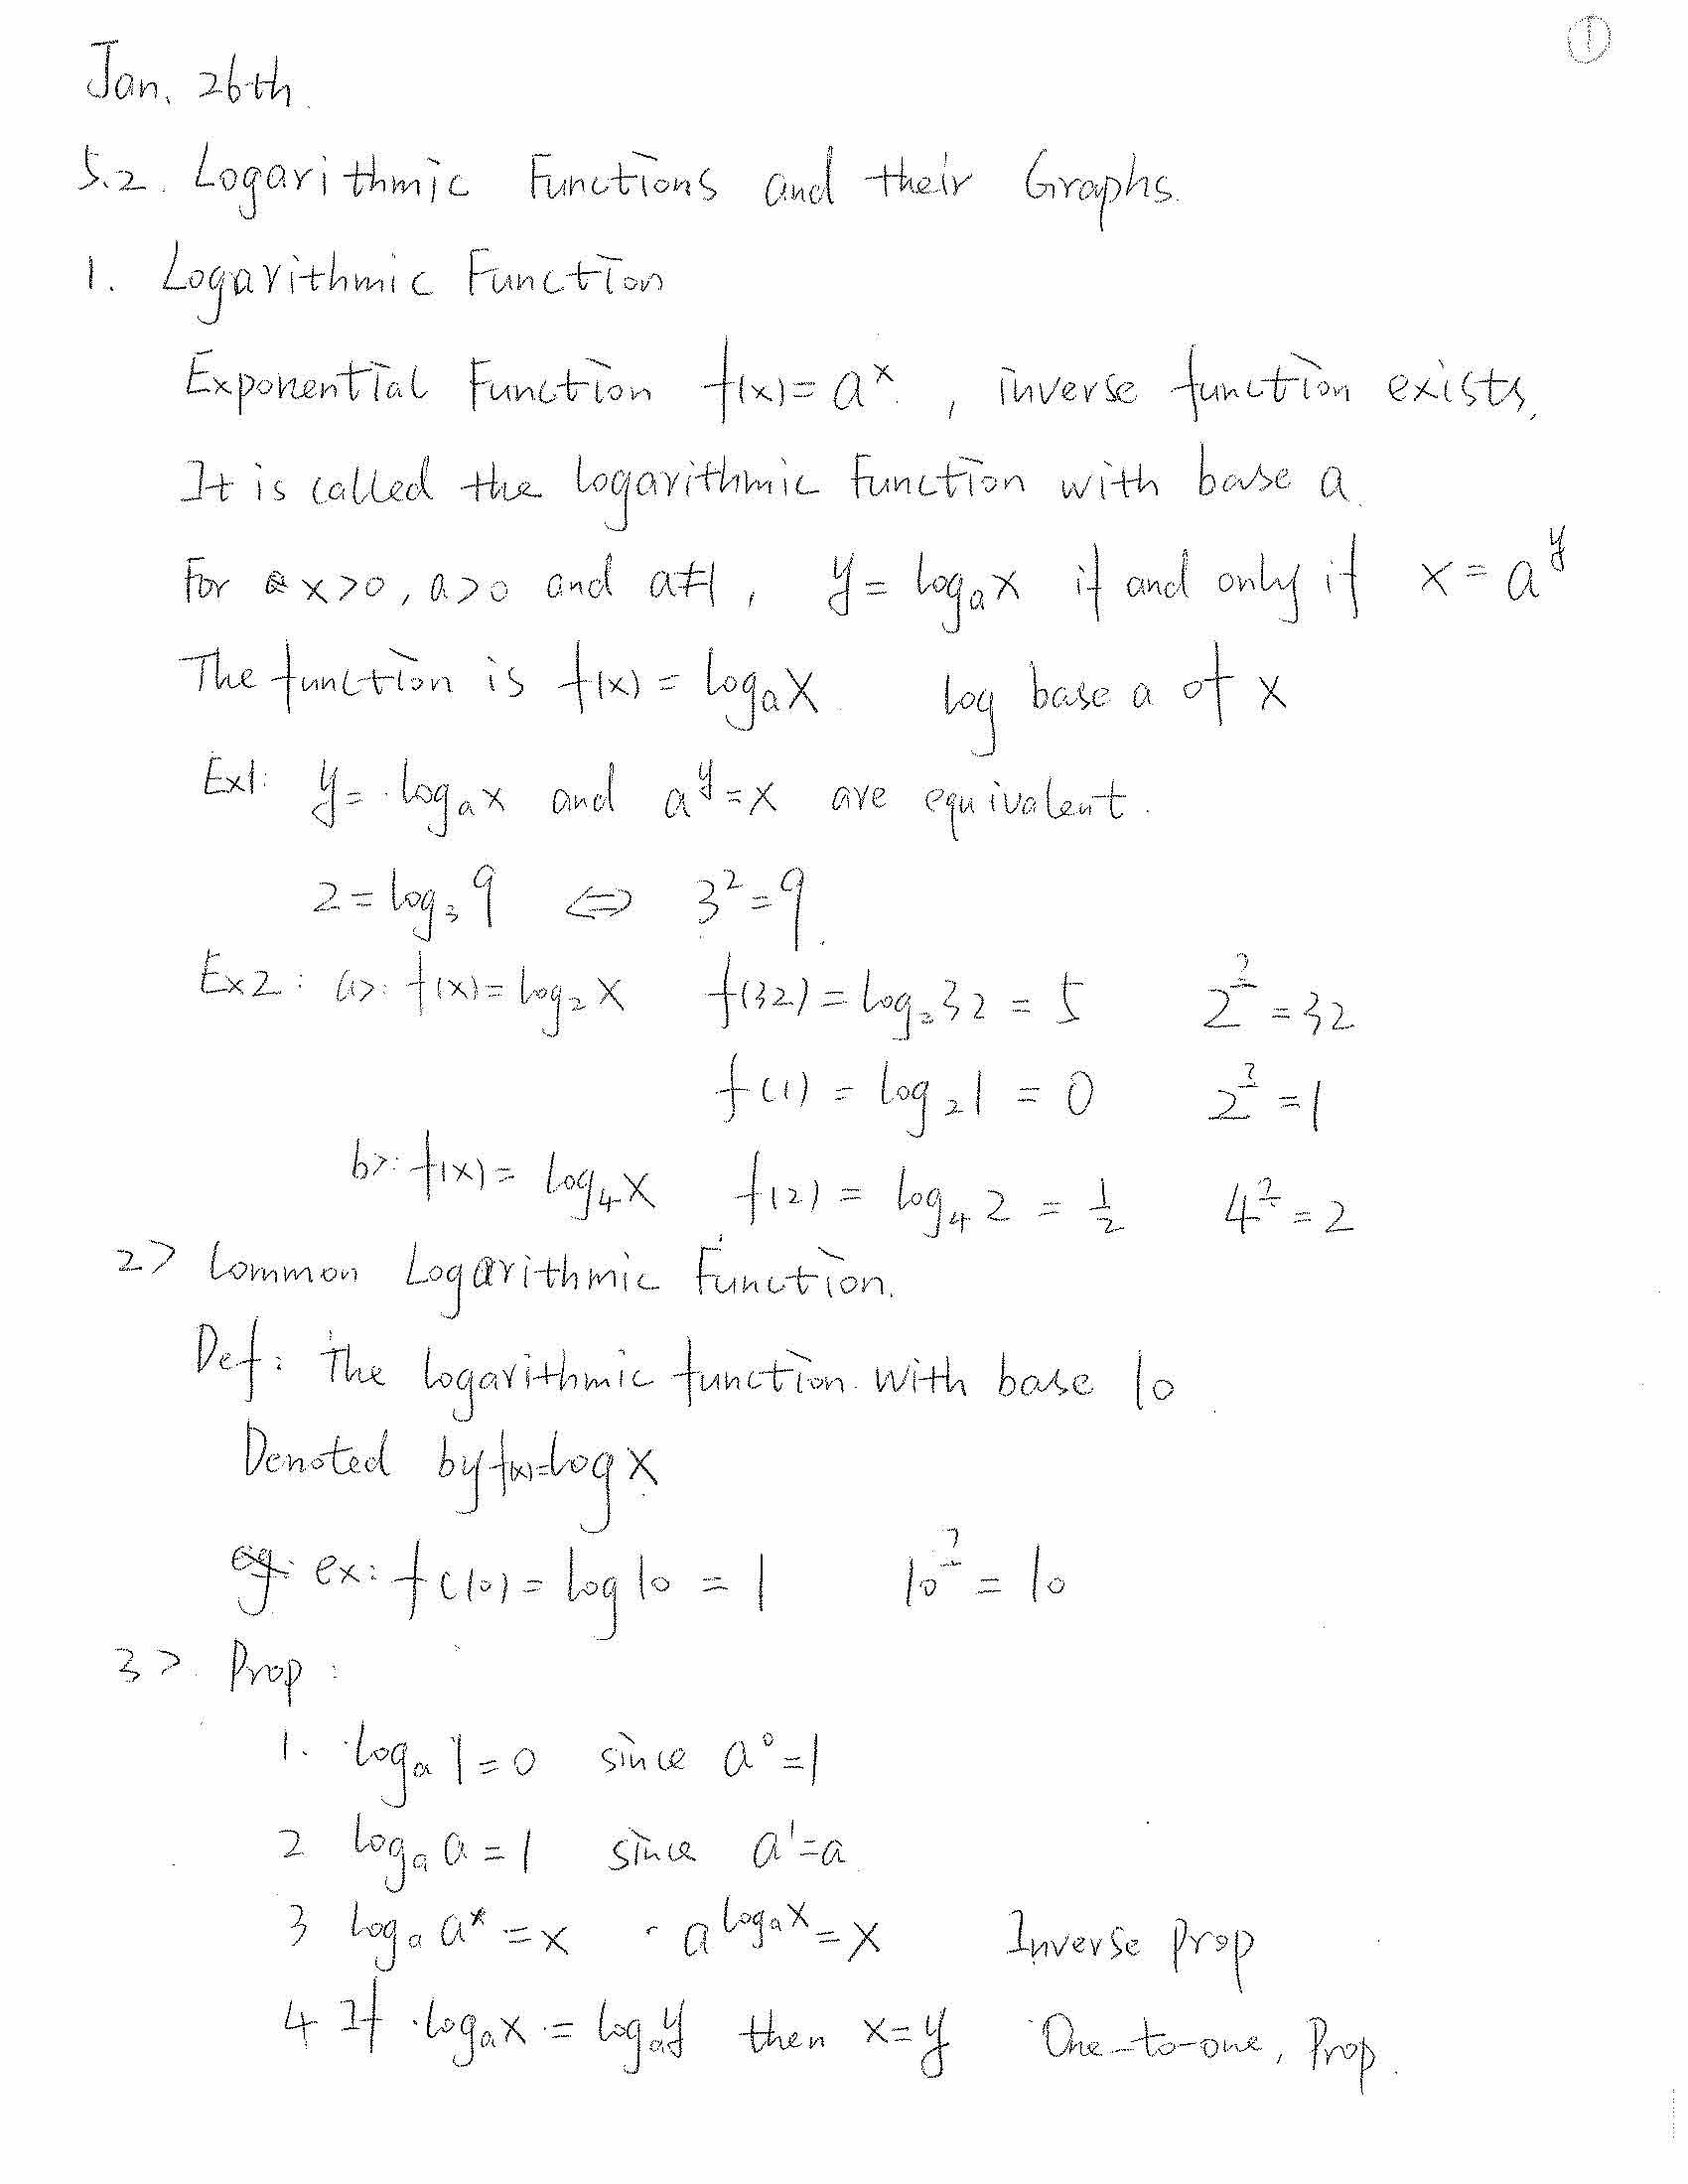 ①
Jan. 26th.
5.2. Logarithmic Functions and their Graphs.
1. Logarithmic Function
Exponential Function f(x)=a^x, inverse function exists.
It is called the logarithmic function with base a.
For x>0, a>0 and a≠1, y=log_a x if and only if x=a^y
The function is f(x)=log_a x. log base a of x
Ex1: y=log_a x and a^y=x are equivalent.
2=log_3 9 ⇔ 3^2=9.
Ex2: a>: f(x)=log_2 x f(32)=log_2 32=5 2^?=32
f(1)=log_2 1=0 2^?=1
b>: f(x)=log_4 x f(2)=log_4 2=1/2 4^?=2
2> Common Logarithmic Function.
Def: The logarithmic function with base 10.
Denoted by f(x)=log x
eg: ex: f(10)=log 10=1 10^?=10
3> Prop:
1. log_a 1=0 since a^0=1
2 log_a a=1 since a^1=a
3 log_a a^x=x a^(log_a x)=x Inverse Prop
4 If log_a x=log_a y then x=y One-to-one, Prop.